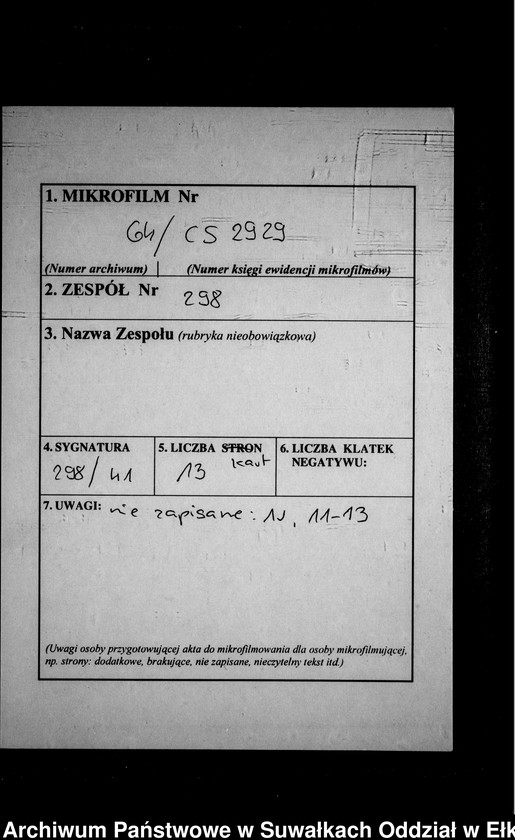 1. MIKROFILM Nr
64/ CS 2929
(Numer archiwum) | (Numer księgi ewidencji mikrofilmów)
2. ZESPÓŁ Nr 298
3. Nazwa Zespołu (rubryka nieobowiązkowa)
4. SYGNATURA 5. LICZBA STRON 6. LICZBA KLATEK
kart NEGATYWU:
298/41 13
7. UWAGI: nie zapisane: 1v, 11-13
(Uwagi osoby przygotowującej akta do mikrofilmowania dla osoby mikrofilmującej,
np. strony: dodatkowe, brakujące, nie zapisane, nieczytelny tekst itd.)
Archiwum Państwowe w Suwałkach Oddział w Ełk